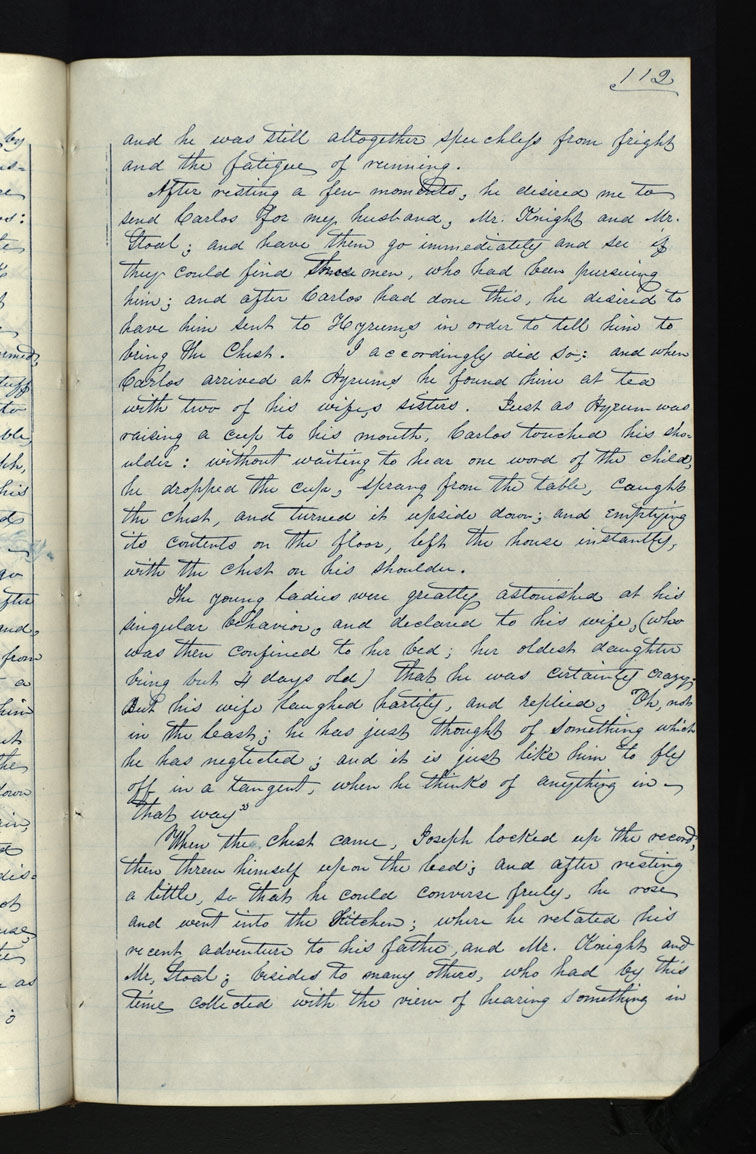 112
and he was still altogether speechless from fright
and the fatigue of running.
After resting a few moments, he desired me to
send Carlos for my husband, Mr. Knight and Mr.
Stoal; and have them go immediately and see if
they could find those men, who had been pursuing
him; and after Carlos had done this, he desired to
have him sent to Hyrums in order to tell him to
bring the Chest. I accordingly did so; and when
Carlos arrived at Hyrums he found him at tea
with two of his wife,s sisters. Just as Hyrum was
raising a cup to his mouth, Carlos touched his sho-
ulder: without waiting to hear one word of the child,
he dropped the cup, sprang from the table, caught
the chest, and turned it upside down; and emptying
its contents on the floor, left the house instantly,
with the chest on his shoulder.
The young ladies were greatly astonished at his
singular behavior, and declared to his wife, (who
was then confined to her bed; her oldest daughter
being but 4 days old) that he was certainly crazy;
But his wife laughed hartily, and replied, "Oh, not
in the least; he has just thought of something which
he has neglected; and it is just like him to fly
off in a tangent, when he thinks of anything in
that way"
When the chest came, Joseph locked up the record,
then threw himself upon the bed; and after resting
a little, so that he could converse freely, he rose
and went into the Kitchen; where he related his
recent adventure to his father, and Mr. Knight and
Mr, Stoal; besides to many others, who had by this
time collected with the view of hearing something in